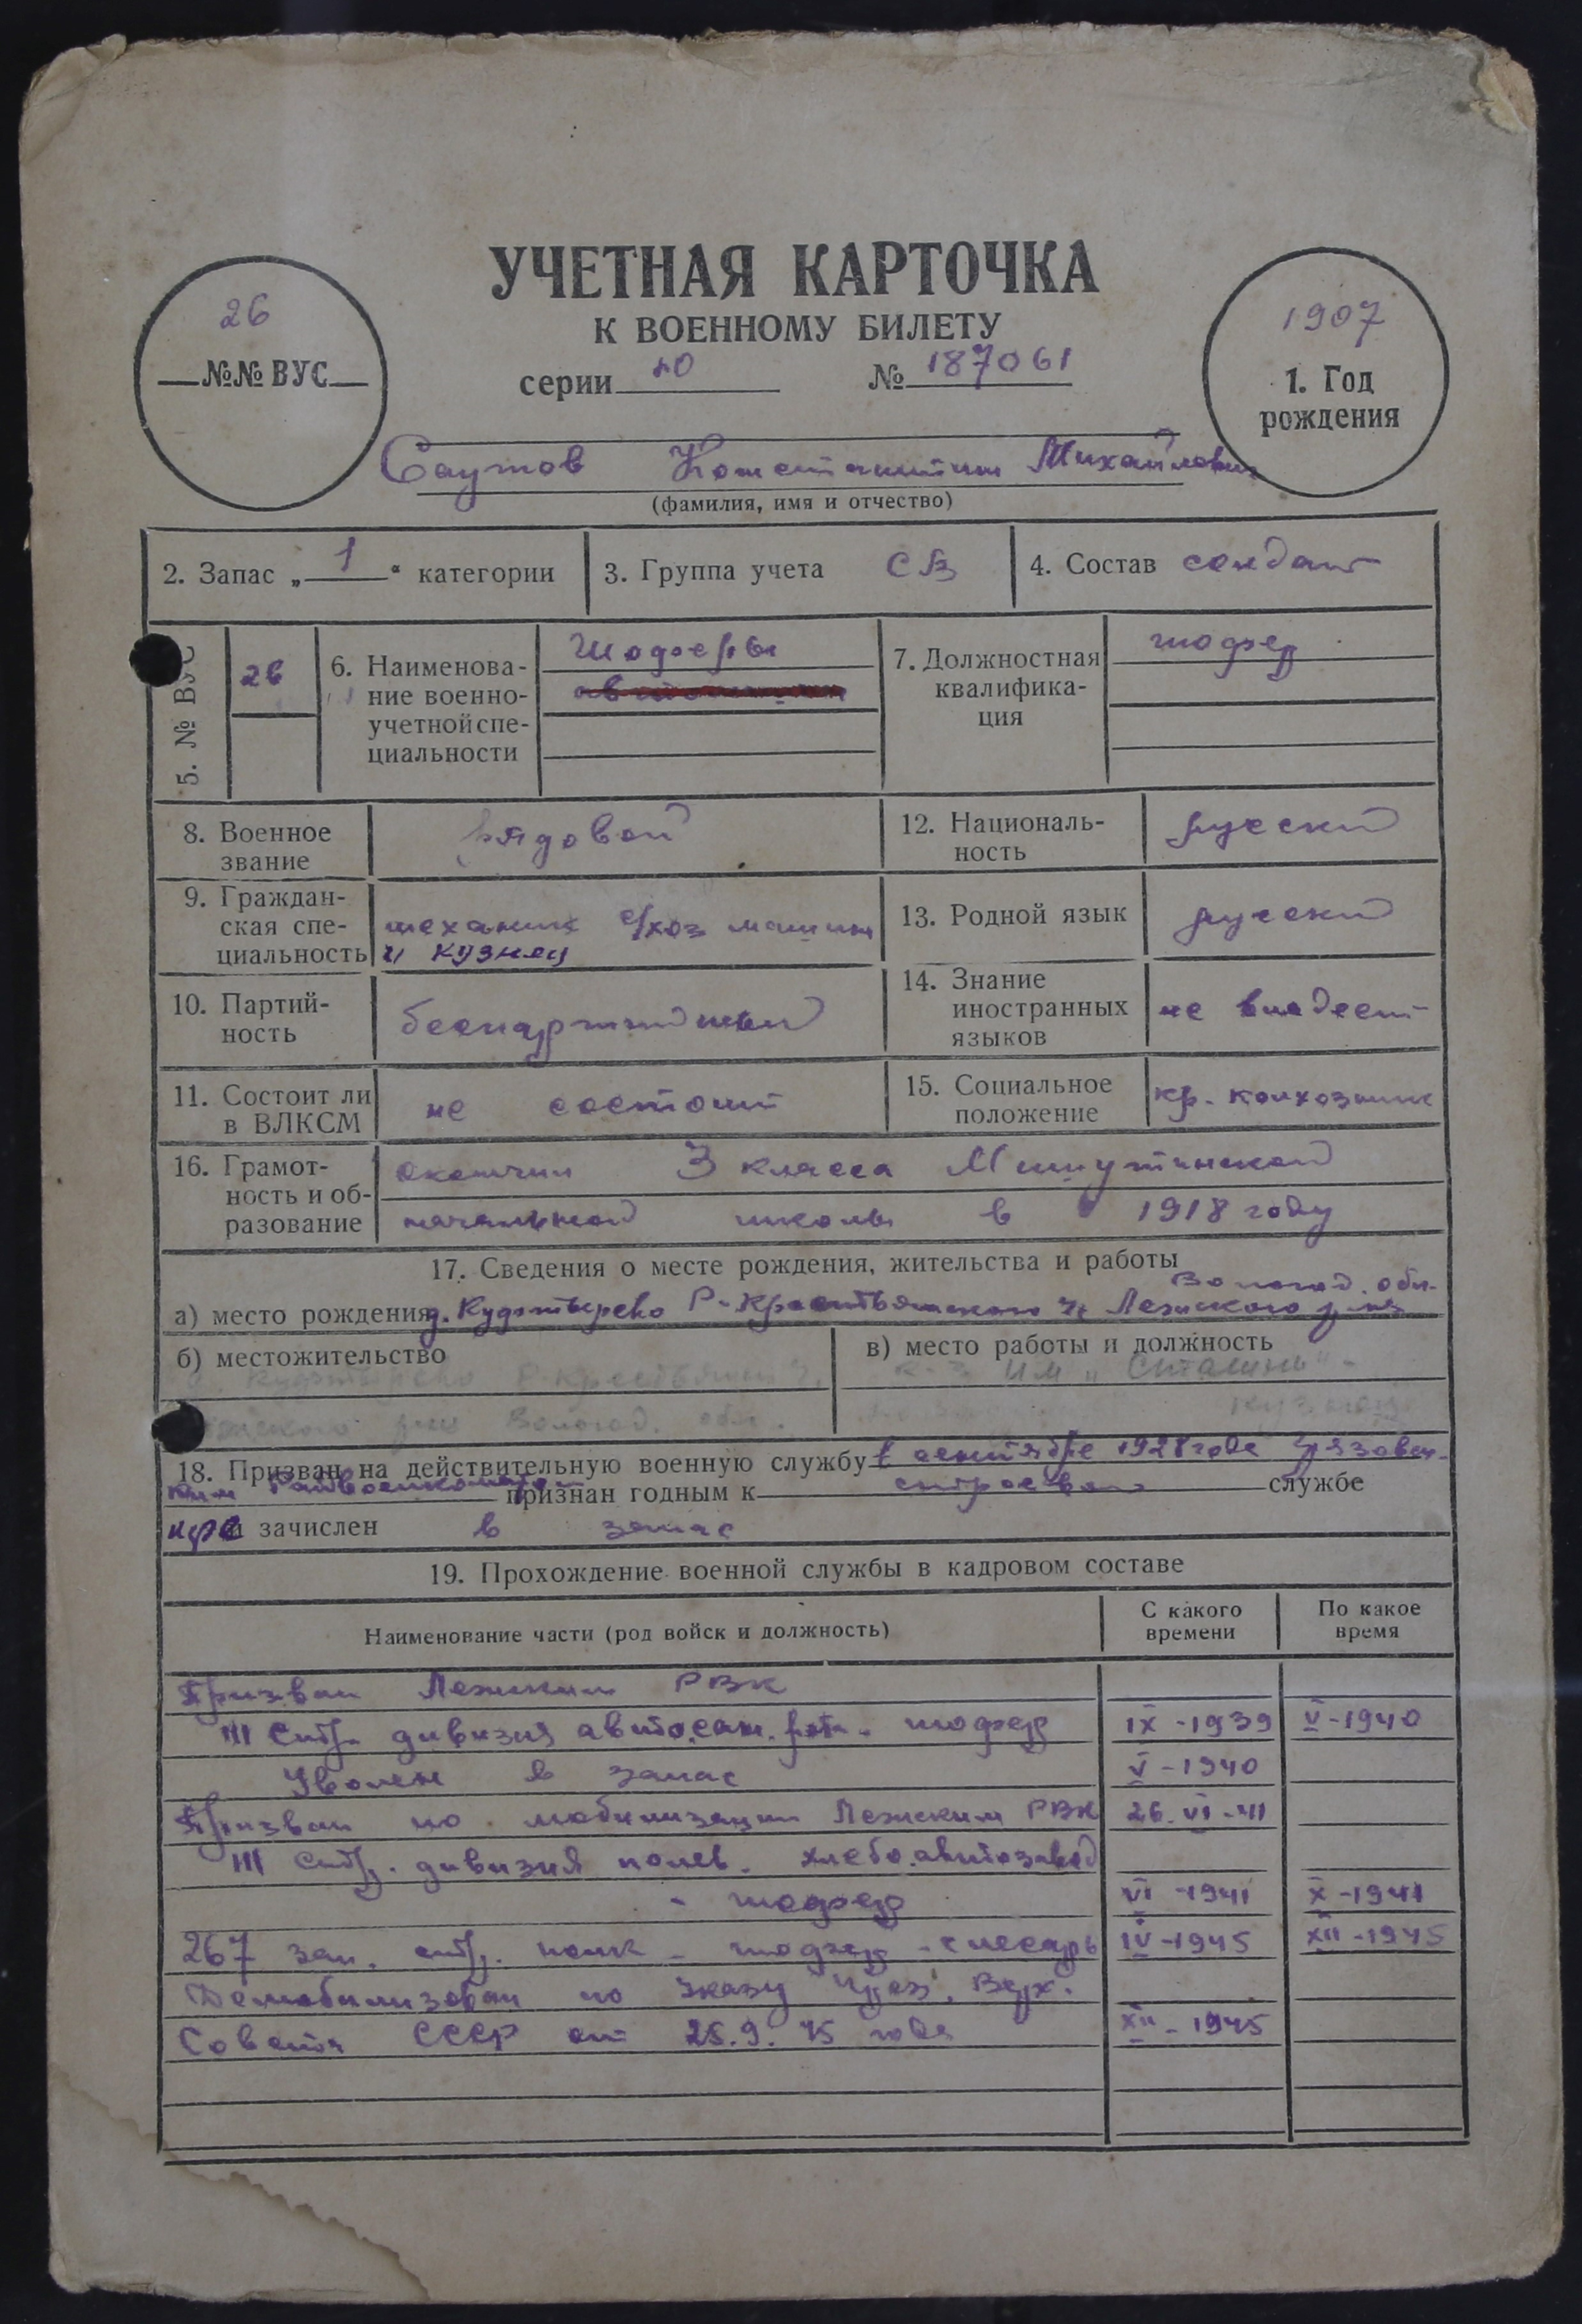 26
№№ ВУС
УЧЕТНАЯ КАРТОЧКА
К ВОЕННОМУ БИЛЕТУ
серии № 187061
1907
1. Год
рождения
Саутов Константин Михайлович
(фамилия, имя и отчество)
2. Запас „1“ категории
3. Группа учета СВ
4. Состав солдат
5. № ВУС
26
6. Наименова-
ние военно-
учетной спе-
циальности
Шоферы
7. Должностная
квалифика-
ция
шофер
8. Военное
звание
рядовой
12. Националь-
ность
русский
9. Граждан-
ская спе-
циальность
механик с/хоз машин
и кузнец
13. Родной язык
русский
10. Партий-
ность
беспартийный
14. Знание
иностранных
языков
не владеет
11. Состоит ли
в ВЛКСМ
не состоит
15. Социальное
положение
кр. колхозник
16. Грамот-
ность и об-
разование
окончил 3 класса
начальной школы в 1918 году
17. Сведения о месте рождения, жительства и работы
Вологод. обл.
а) место рождения д. Р-Крестьянского Лежского р-на
б) местожительство
Р-Крестьянск
Вологод. обл.
в) место работы и должность
к-з им „Сталина“
кузнец
18. Призван на действительную военную службу в сентябре 1928 года Грязовец-
ким Райвоенкоматом признан годным к строевой службе
и зачислен в запас
19. Прохождение военной службы в кадровом составе
Наименование части (род войск и должность)
С какого
времени
По какое
время
Призван Лежским РВК
111 стр. дивизия автосан. рота - шофер IX-1939 V-1940
Уволен в запас V-1940
Призван по мобилизации Лежским РВК 26.VI-41
111 стр. дивизия полев. хлебо.автозавод
- шофер VI-1941 X-1941
267 зап. стр. полк - шофер - слесарь IV-1945 XII-1945
Демобилизован по Указу През. Верх.
Совета СССР от 25.9.45 года XII-1945